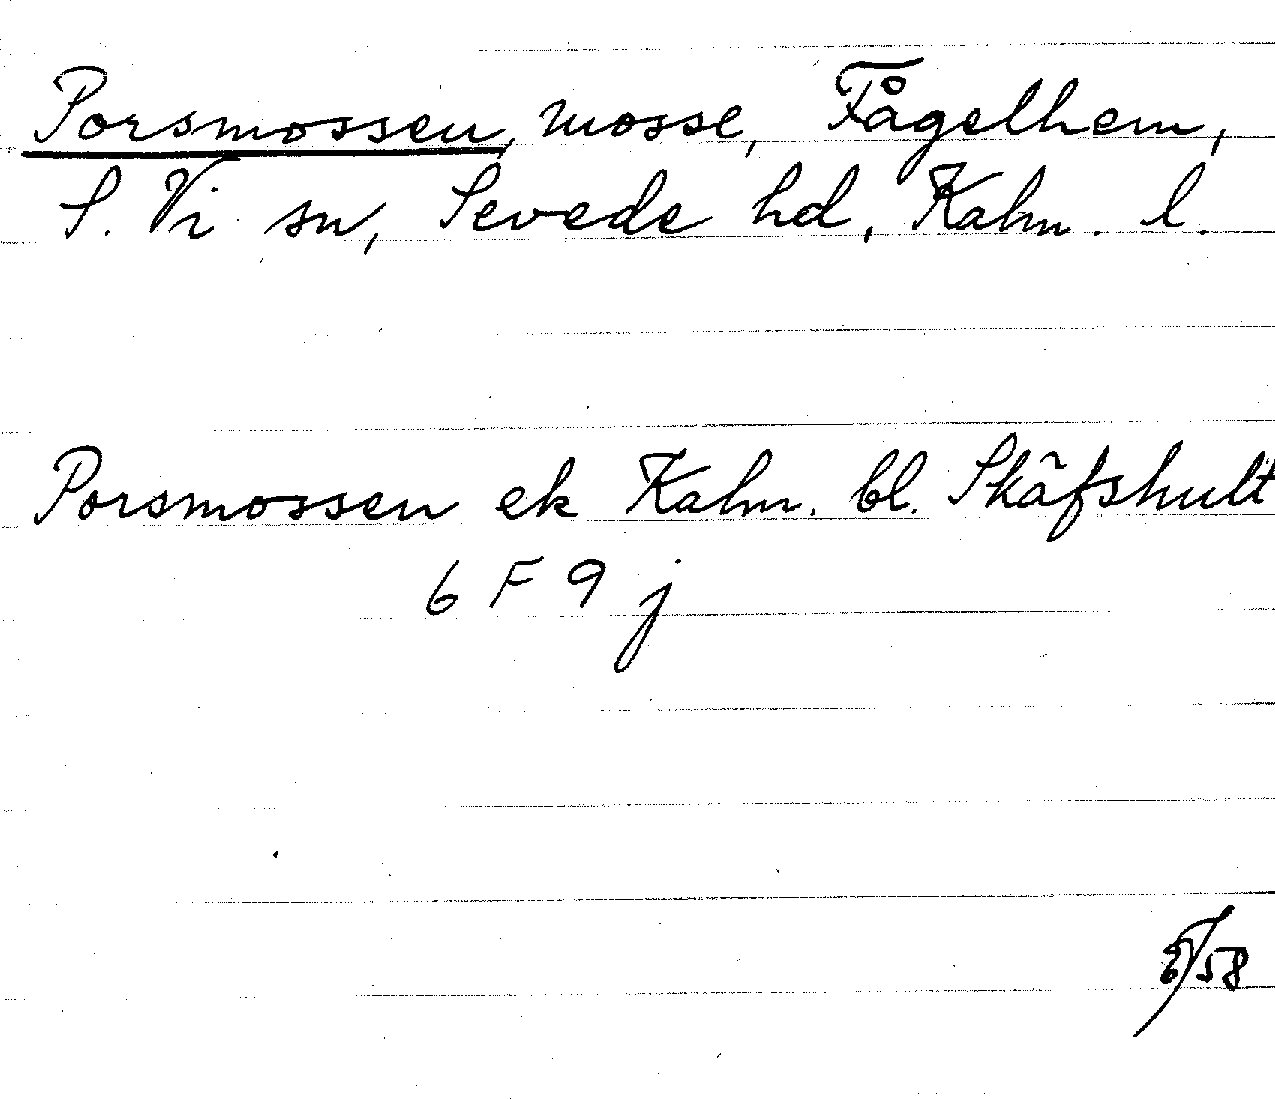 Porsmossen, mosse, Fågelhem,
S. Vi sn, Sevede hd, Kalm. l.
Porsmossen ek Kalm. bl. Skäfshult
6 F 9 j
/58